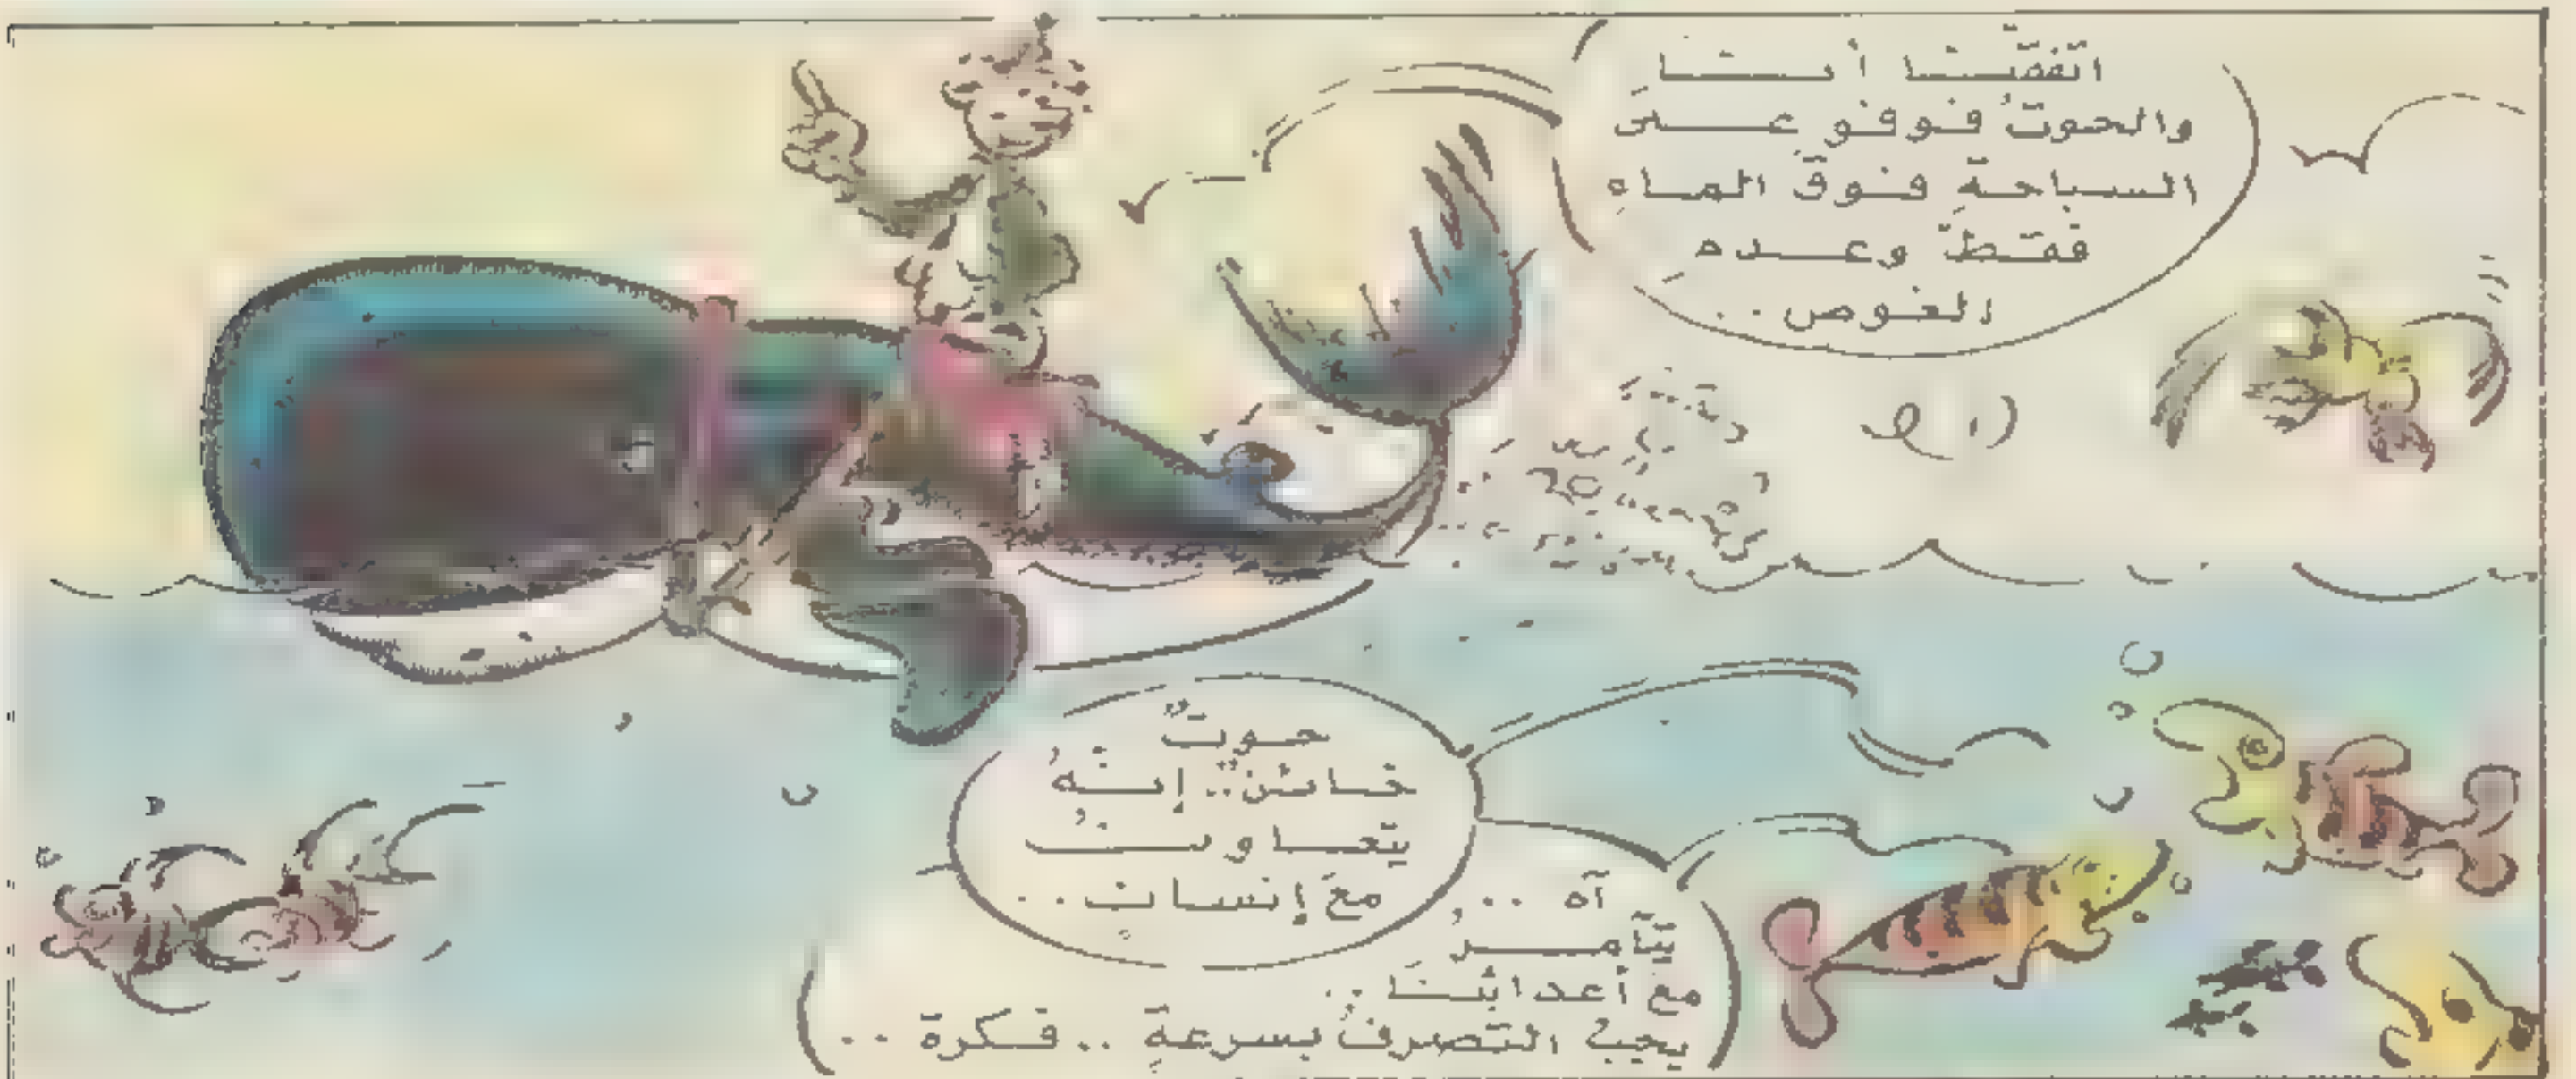 اتفقنا أنا
والحوت فوفو على
السباحة فوق الماء
فقط وعدم
الغوص ..
حوت
خائن .. إنه
يتعاون
مع إنسان ..
آه ..
يتآمر
مع أعدائنا ..
يجب التصرف بسرعة .. فكرة ..